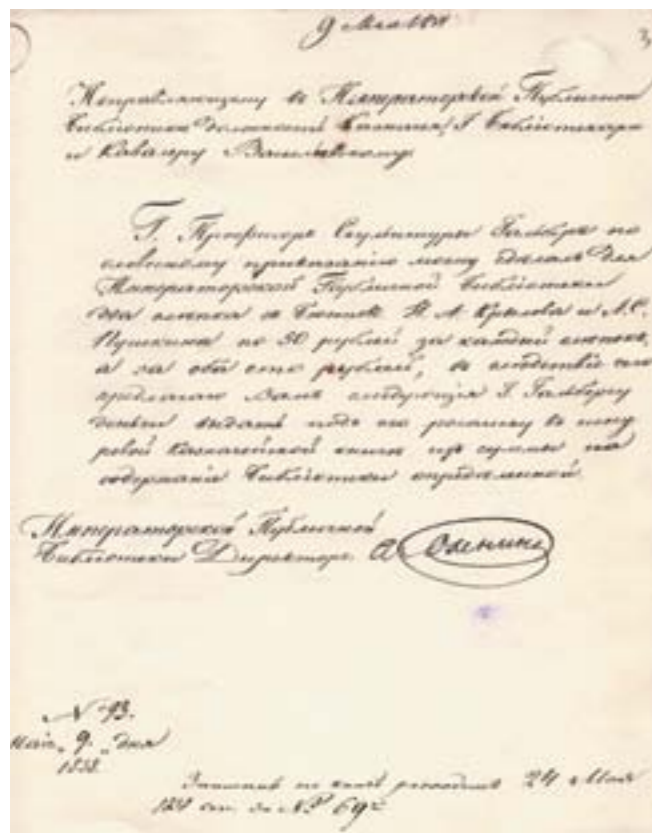 9 Мая 1838
3
Исправляющему въ Императорской Публичной
Библіотекѣ должность Казначея, Г. Библіотекарю
и Кавалеру
Г. Профессоръ Скульптуры Гальбергъ по
словесному приказанію моему сдѣлалъ для
Императорской Публичной Библіотеки
два слепка съ бюстовъ И. А. Крылова и А. С.
Пушкина по 50 рублей за каждый слепокъ,
а за оба сто рублей, въ слѣдствіе чего
предлагаю Вамъ слѣдующія Г. Гальбергу
деньги выдать подъ его росписку въ шну
ровой Казначейской книгѣ изъ суммы на
содержаніе Библіотеки опредѣленной.
Императорской Публичной
Библіотеки Директоръ А Оленинъ
N 93.
Маія „ 9 „ дня
1838.
по книгѣ 24 Мая
за № 69